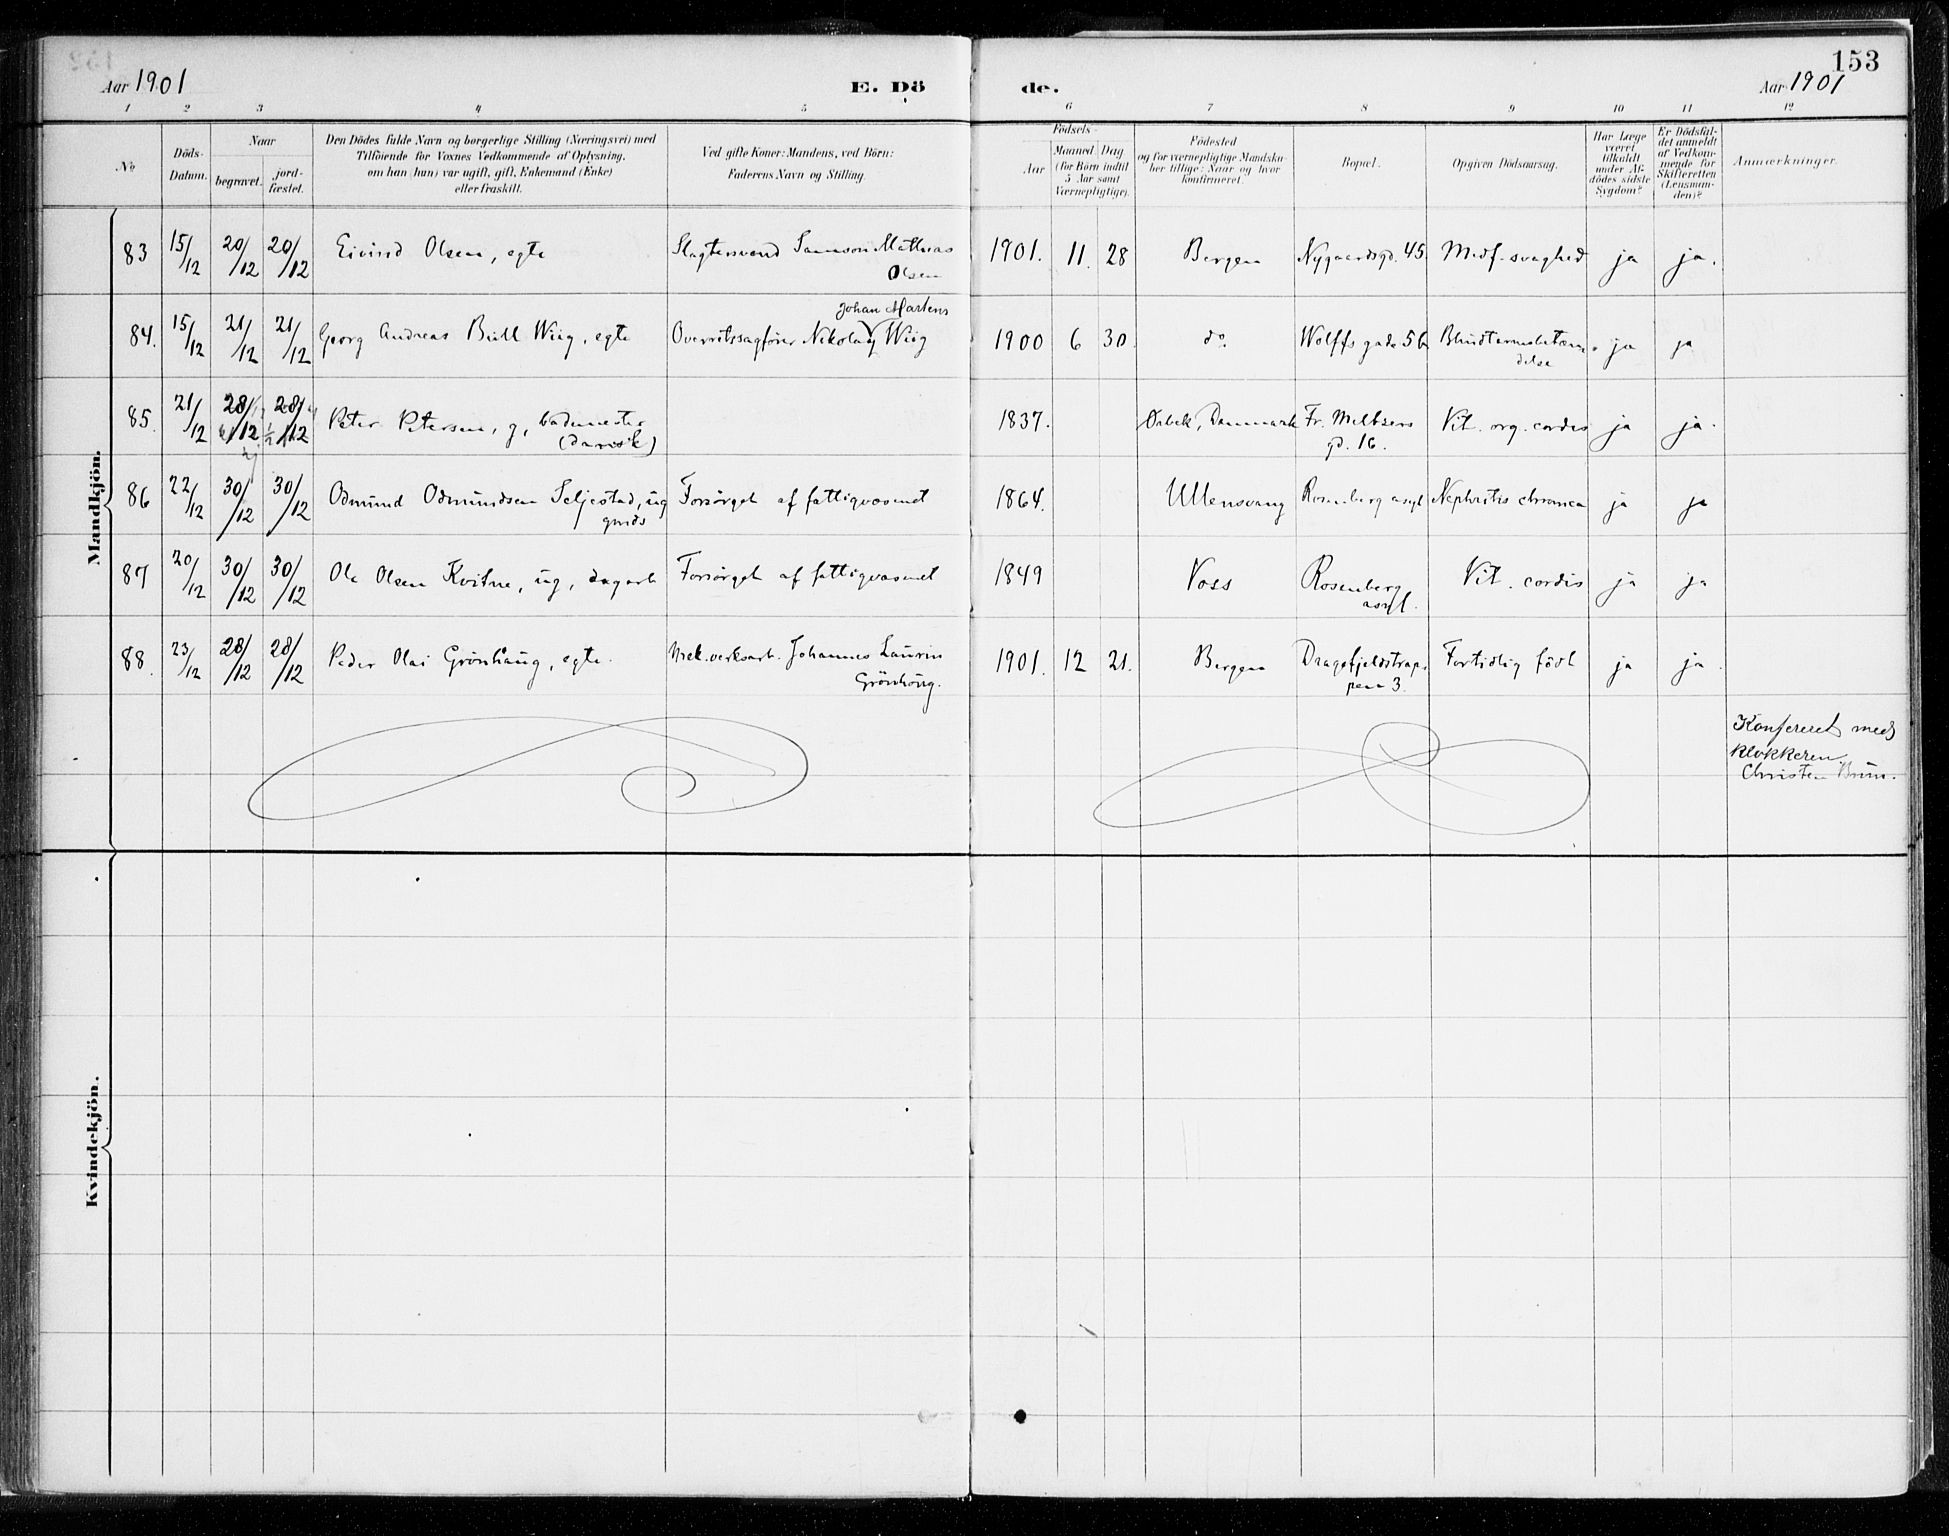 153
Aar 1901
E. Dö
de.
Aar 1901
1 2 3 4 5 6 7 8 9 10 11 12
No
Döds-
Datum.
Naar
begravet.
jord-
fæstet.
Den Dödes fulde Navn og borgerlige Stilling (Næringsvei) med
Tilföiende for Voxnes Vedkommende af Oplysning,
om han (hun) var ugift, gift, Enkemand (Enke)
eller fraskilt.
Ved gifte Koner: Mandens, ved Börn:
Faderens Navn og Stilling.
Födsels-
Aar
Maaned Dag
(for Börn indtil
5 Aar samt
Værnepligtige).
Födested
og for værnepligtige Mandska-
ber tillige: Naar og hvor
konfirmeret.
Bopæl.
Opgiven Dödsaarsag.
Har Læge
været
tilkaldt
under Af-
dödes sidste
Sygdom?
Er Dödsfal-
det anmeldt
af Vedkom-
mende for
Skifteretten
(Lensman-
den)?
Anmærkninger.
Mandkjön.
83 15/12 20/12 20/12 Eivind Olsen, egte Slagtersvend Samson Mathias
Olsen
1901. 11. 28 Bergen Nygaardsgd. 45 Medf. svaghed ja ja.
Johan Martens
84. 15/12 21/12 21/12 Georg Andreas Bull Wiig, egte Overretssagfører Nikolay Wiig
1900 6 30 do. Wolffs gade 5b Blindtarmsbetæn-
delse
ja ja
85. 21/12 28/12 28/12 Peter Petersen, g, bademester
(dansk)
1837. Ørbek, Danmark Fr. Meltzers
gd. 16.
Vit. org. cordis ja ja.
86 22/12 30/12 30/12 Odmund Odmundsen Seljestad, ug
gmds
Forsörget af fattigvæsenet
1864. Ullensvang Rosenberg asyl Nephritis chronica ja ja
87 20/12 30/12 30/12 Ole Olsen Kvitne, ug, dagarb Forsörget af fattigvæsenet
1849 Voss Rosenberg
asyl.
Vit. cordis ja ja
88. 23/12 28/12 28/12 Peder Olai Grönhaug, egte. Mek.verksarb. Johannes Laurin
Grönhaug.
1901. 12 21. Bergen Dragefjeldstrap-
pen 3.
Fortidlig född ja ja.
Konfereret med
klokkeren
Christen Brun.
Kvindekjön.